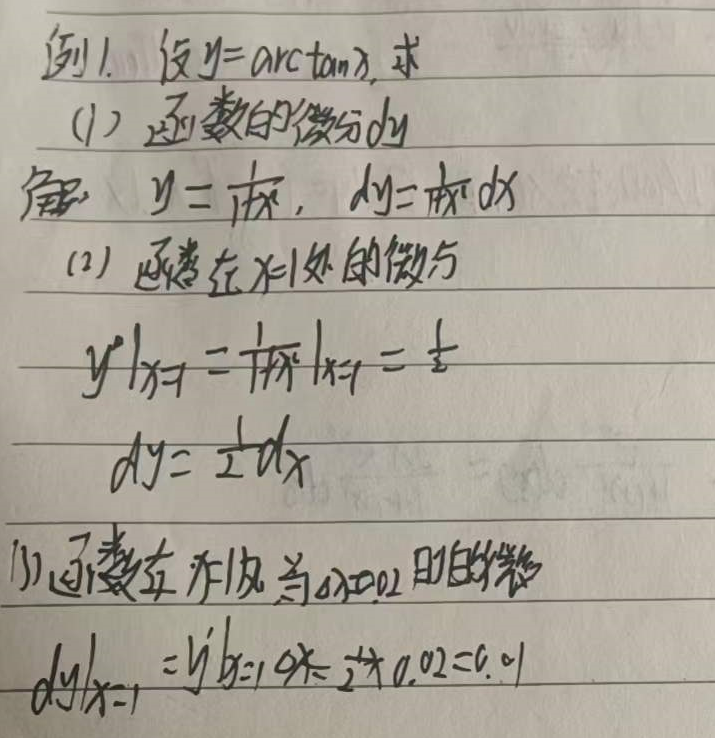 例1. 设y=arctanx,求
(1) 函数的微分dy
解: y = 1/(1+x²), dy = 1/(1+x²) dx
(2) 函数在x=1处的微分
y'|x=1 = 1/(1+x²)|x=1 = 1/2
dy = 1/2 dx
(3) 函数在x=1处当Δx=0.02时的微分
dy|x=1 = y'|x=1 Δx = 1/2 × 0.02 = 0.01